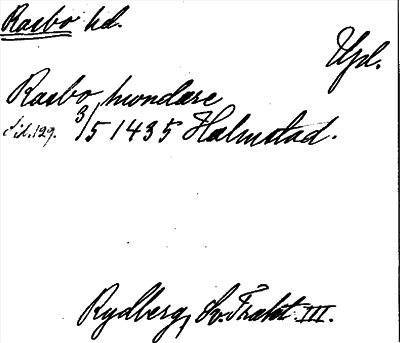 Rasbo hd.
Upl.
Rasbo hundære
Sid. 129. 3/5 1435 Halmstad.
Rydberg, Sv. Trakt. III.